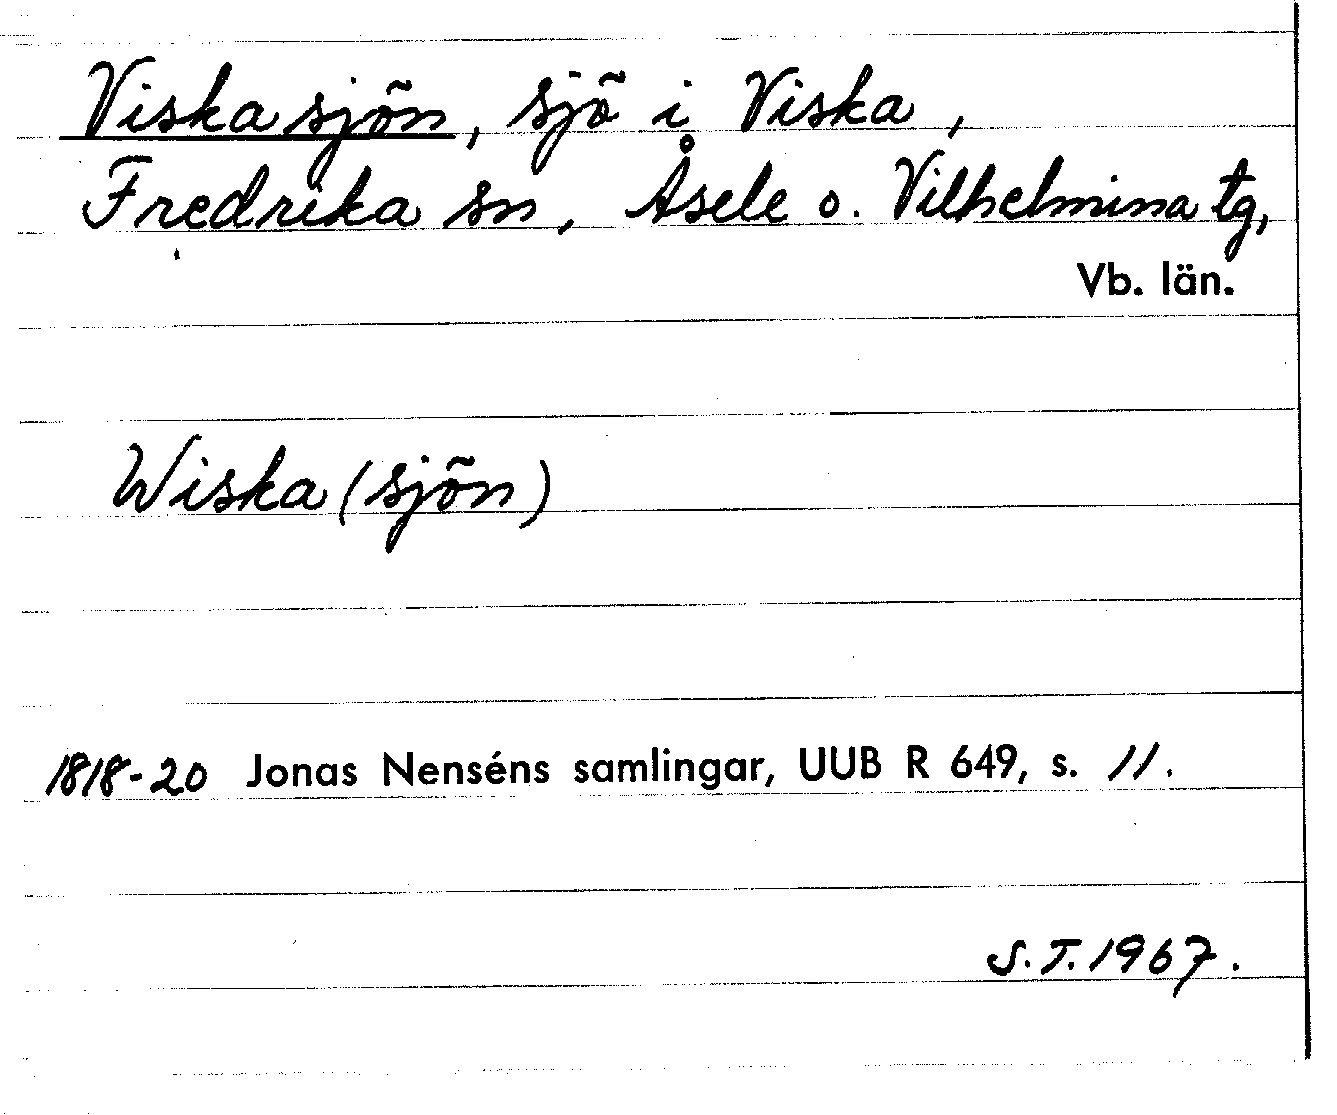 Viskasjön, sjö i Viska,
Fredrika sn, Åsele o. Vilhelmina tg,
Vb. län.
Wiska (sjön)
1818-20 Jonas Nenséns samlingar, UUB R 649, s. 11.
S.T. 1967.